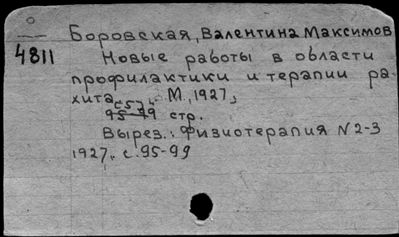 Боровская, Валентина Максимов
4811 Новые работы в области
профилактики и терапии ра-
хита, с 5 М., 1927,
95-99 стр.
Вырез.: Физиотерапия N 2-3
1927, с. 95-99